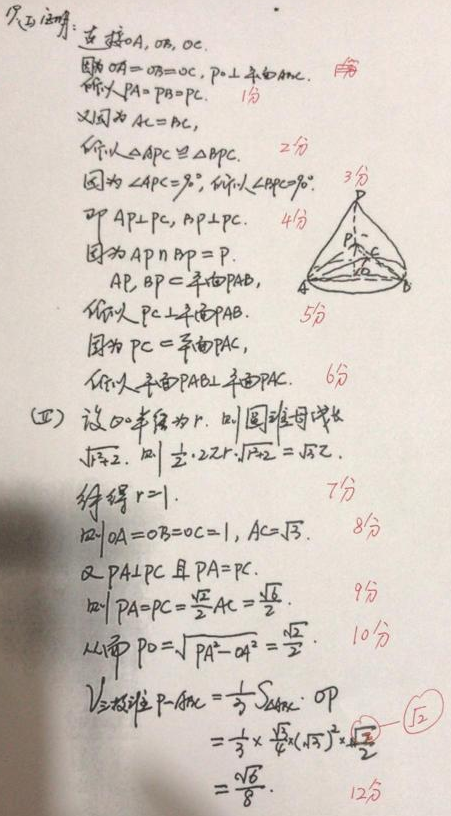 19.(I)证明:
连接OA, OB, OC.
因为OA=OB=OC, PO⊥平面ABC.
所以PA=PB=PC. 1分
又因为 AC=BC,
所以△APC≌△BPC. 2分
因为∠APC=90°, 所以∠BPC=90°. 3分
即 AP⊥PC, BP⊥PC. 4分
因为 AP∩BP=P.
AP, BP⊂平面PAB,
所以 PC⊥平面PAB. 5分
因为 PC⊂平面PAC,
所以平面PAB⊥平面PAC. 6分
D
P
C
A
O
B
(II) 设⊙O半径为r. 则圆锥母线长
√r²+2. 则 1/2·2πr·√r²+2=√3π.
解得 r=1. 7分
则OA=OB=OC=1, AC=√3. 8分
又PA⊥PC且PA=PC.
则PA=PC=√2/2 AC=√6/2. 9分
从而 PO=√PA²-OA²=√2/2. 10分
V三棱锥P-ABC=1/3 S△ABC·OP
=1/3×√3/4×(√3)²×√2/2 √2
=√6/8. 12分